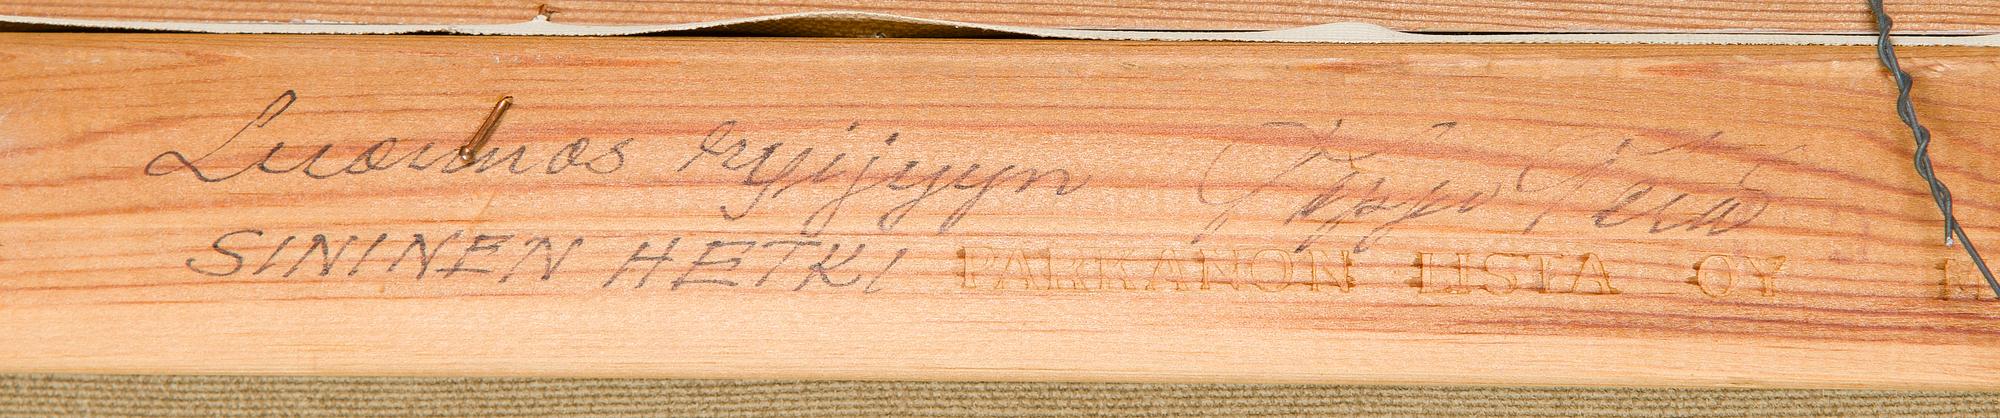 Luonnos ryijyyn
SININEN HETKI
PARKANON LISTA OY M